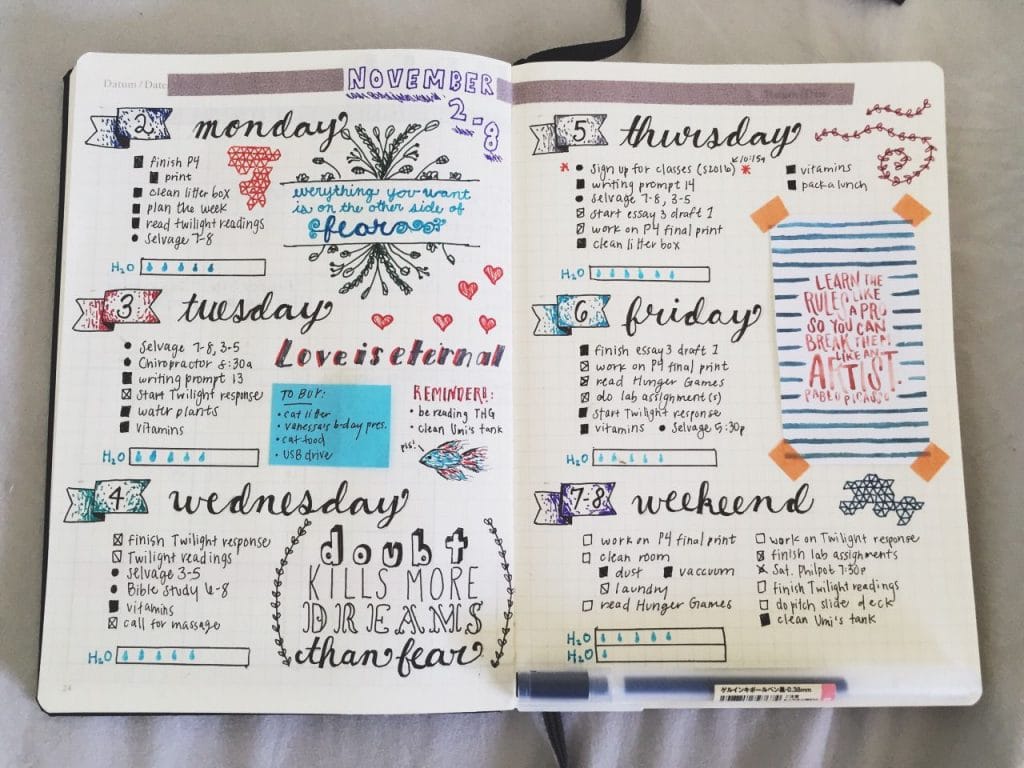 Datum / Date
NOVEMBER
2-8
2 monday
finish P4
print
clean litter box
plan the week
read twilight readings
Selvage 7-8
H2O
everything you want
is on the other side of
fear
3 tuesday
Selvage 7-8, 3-5
Chiropractor 8:30a
writing prompt 13
start Twilight response
water plants
vitamins
H2O
Love is eternal
TO BUY:
cat litter
vanessa's b-day pres.
cat food
USB drive
REMINDER!:
be reading THG
clean Umi's tank
pls!
4 wednesday
finish Twilight response
Twilight readings
Selvage 3-5
Bible study 6-8
vitamins
call for massage
H2O
doubt
KILLS MORE
DREAMS
than fear
24
5 thursday
sign up for classes (S2016)
10:15a
writing prompt 14
Selvage 7-8, 3-5
start essay 3 draft 1
work on P4 final print
clean litter box
vitamins
pack a lunch
H2O
6 friday
finish essay 3 draft 1
work on P4 final print
read Hunger Games
do lab assignment(s)
start Twilight response
vitamins
Selvage 5:30p
H2O
LEARN THE
RULES LIKE
A PRO
SO YOU CAN
BREAK THEM
LIKE AN
ARTIST.
PABLO PICASSO
7-8 weekeend
work on P4 final print
clean room
dust
vaccuum
laundry
read Hunger Games
work on Twilight response
finish lab assignments
Sat. Philpot 7:30p
finish Twilight readings
do pitch slide deck
clean Umi's tank
H2O
H2O
ゲルインキボールペン黒・0.38mm